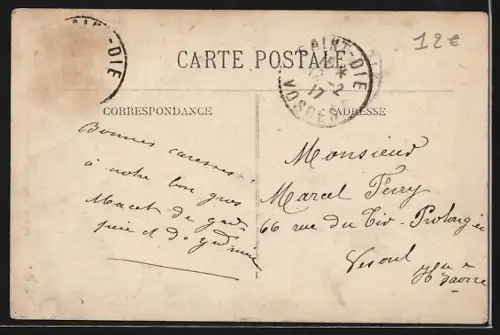 12€
CARTE POSTALE
SAINT-DIÉ
SAINT-DIE
-2
17
VOSGES
CORRESPONDANCE
ADRESSE
Bonnes caresses
à notre bon gros
Marcel de
et de
Monsieur
Marcel Ferry
66 rue du Tir - Prolongée
Vesoul Hte Saone